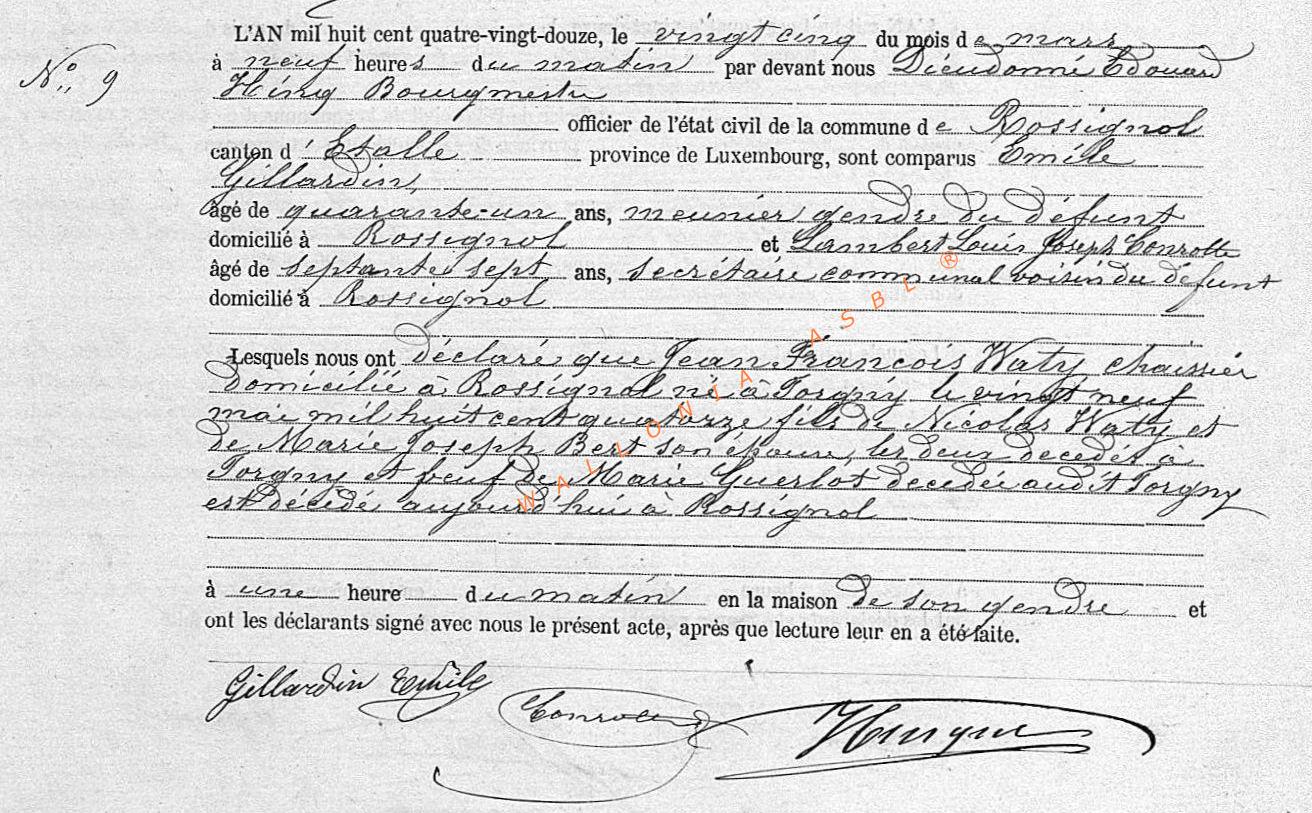 N° 9
L'AN mil huit cent quatre-vingt-douze, le vingt cinq du mois de mars
à neuf heures du matin par devant nous Dieudonné Edouard
Hinq Bourgmestre
officier de l'état civil de la commune de Rossignol
canton d'Etalle province de Luxembourg, sont comparus Emile
Gillardin,
âgé de quarante-un ans, meunier gendre du défunt
domicilié à Rossignol et Lambert Louis Joseph Conrotte
âgé de septante sept ans, secrétaire communal voisin du défunt
domicilié à Rossignol
Lesquels nous ont déclaré que Jean François Waty
domicilié à Rossignol né à Torgny le vingt neuf
mai mil huit cent quatorze fils de Nicolas Waty et
de Marie Joseph Bert son épouse, les deux decedés à
Torgny et veuf de Marie Guerlot decedée audit Torgny
est décédé aujourd'hui à Rossignol
à une heure du matin en la maison de son gendre et
ont les déclarants signé avec nous le présent acte, après que lecture leur en a été faite.
Gillardin Emile
WALLONIA ASBL ®